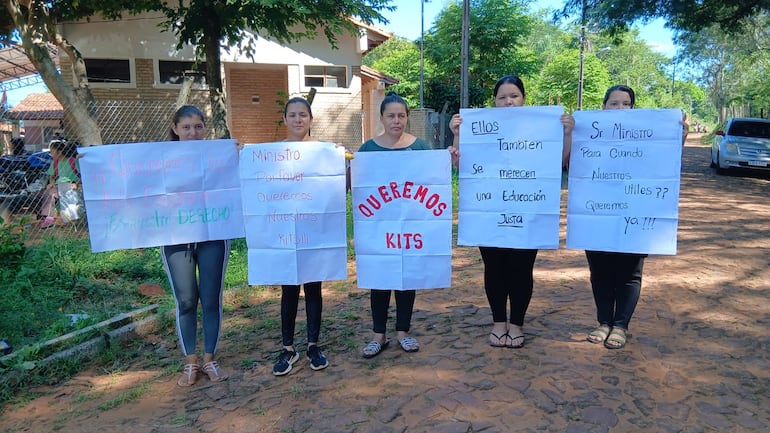 DERECHO
Ministro
Porfavor
Queremos
Nuestros
Kits!!!
QUEREMOS
KITS
Ellos
También
Se merecen
una Educación
Justa
Sr Ministro
Para Cuando
Nuestros
utiles??
Queremos
ya!!!